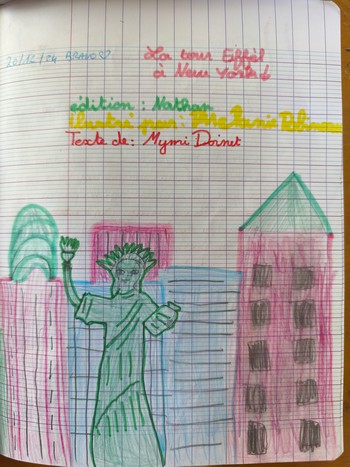 20/12/24 BRAVO♡
La tour Eiffel
à New York
édition : Nathan
illustré par :
Texte de : Mymi Doinet